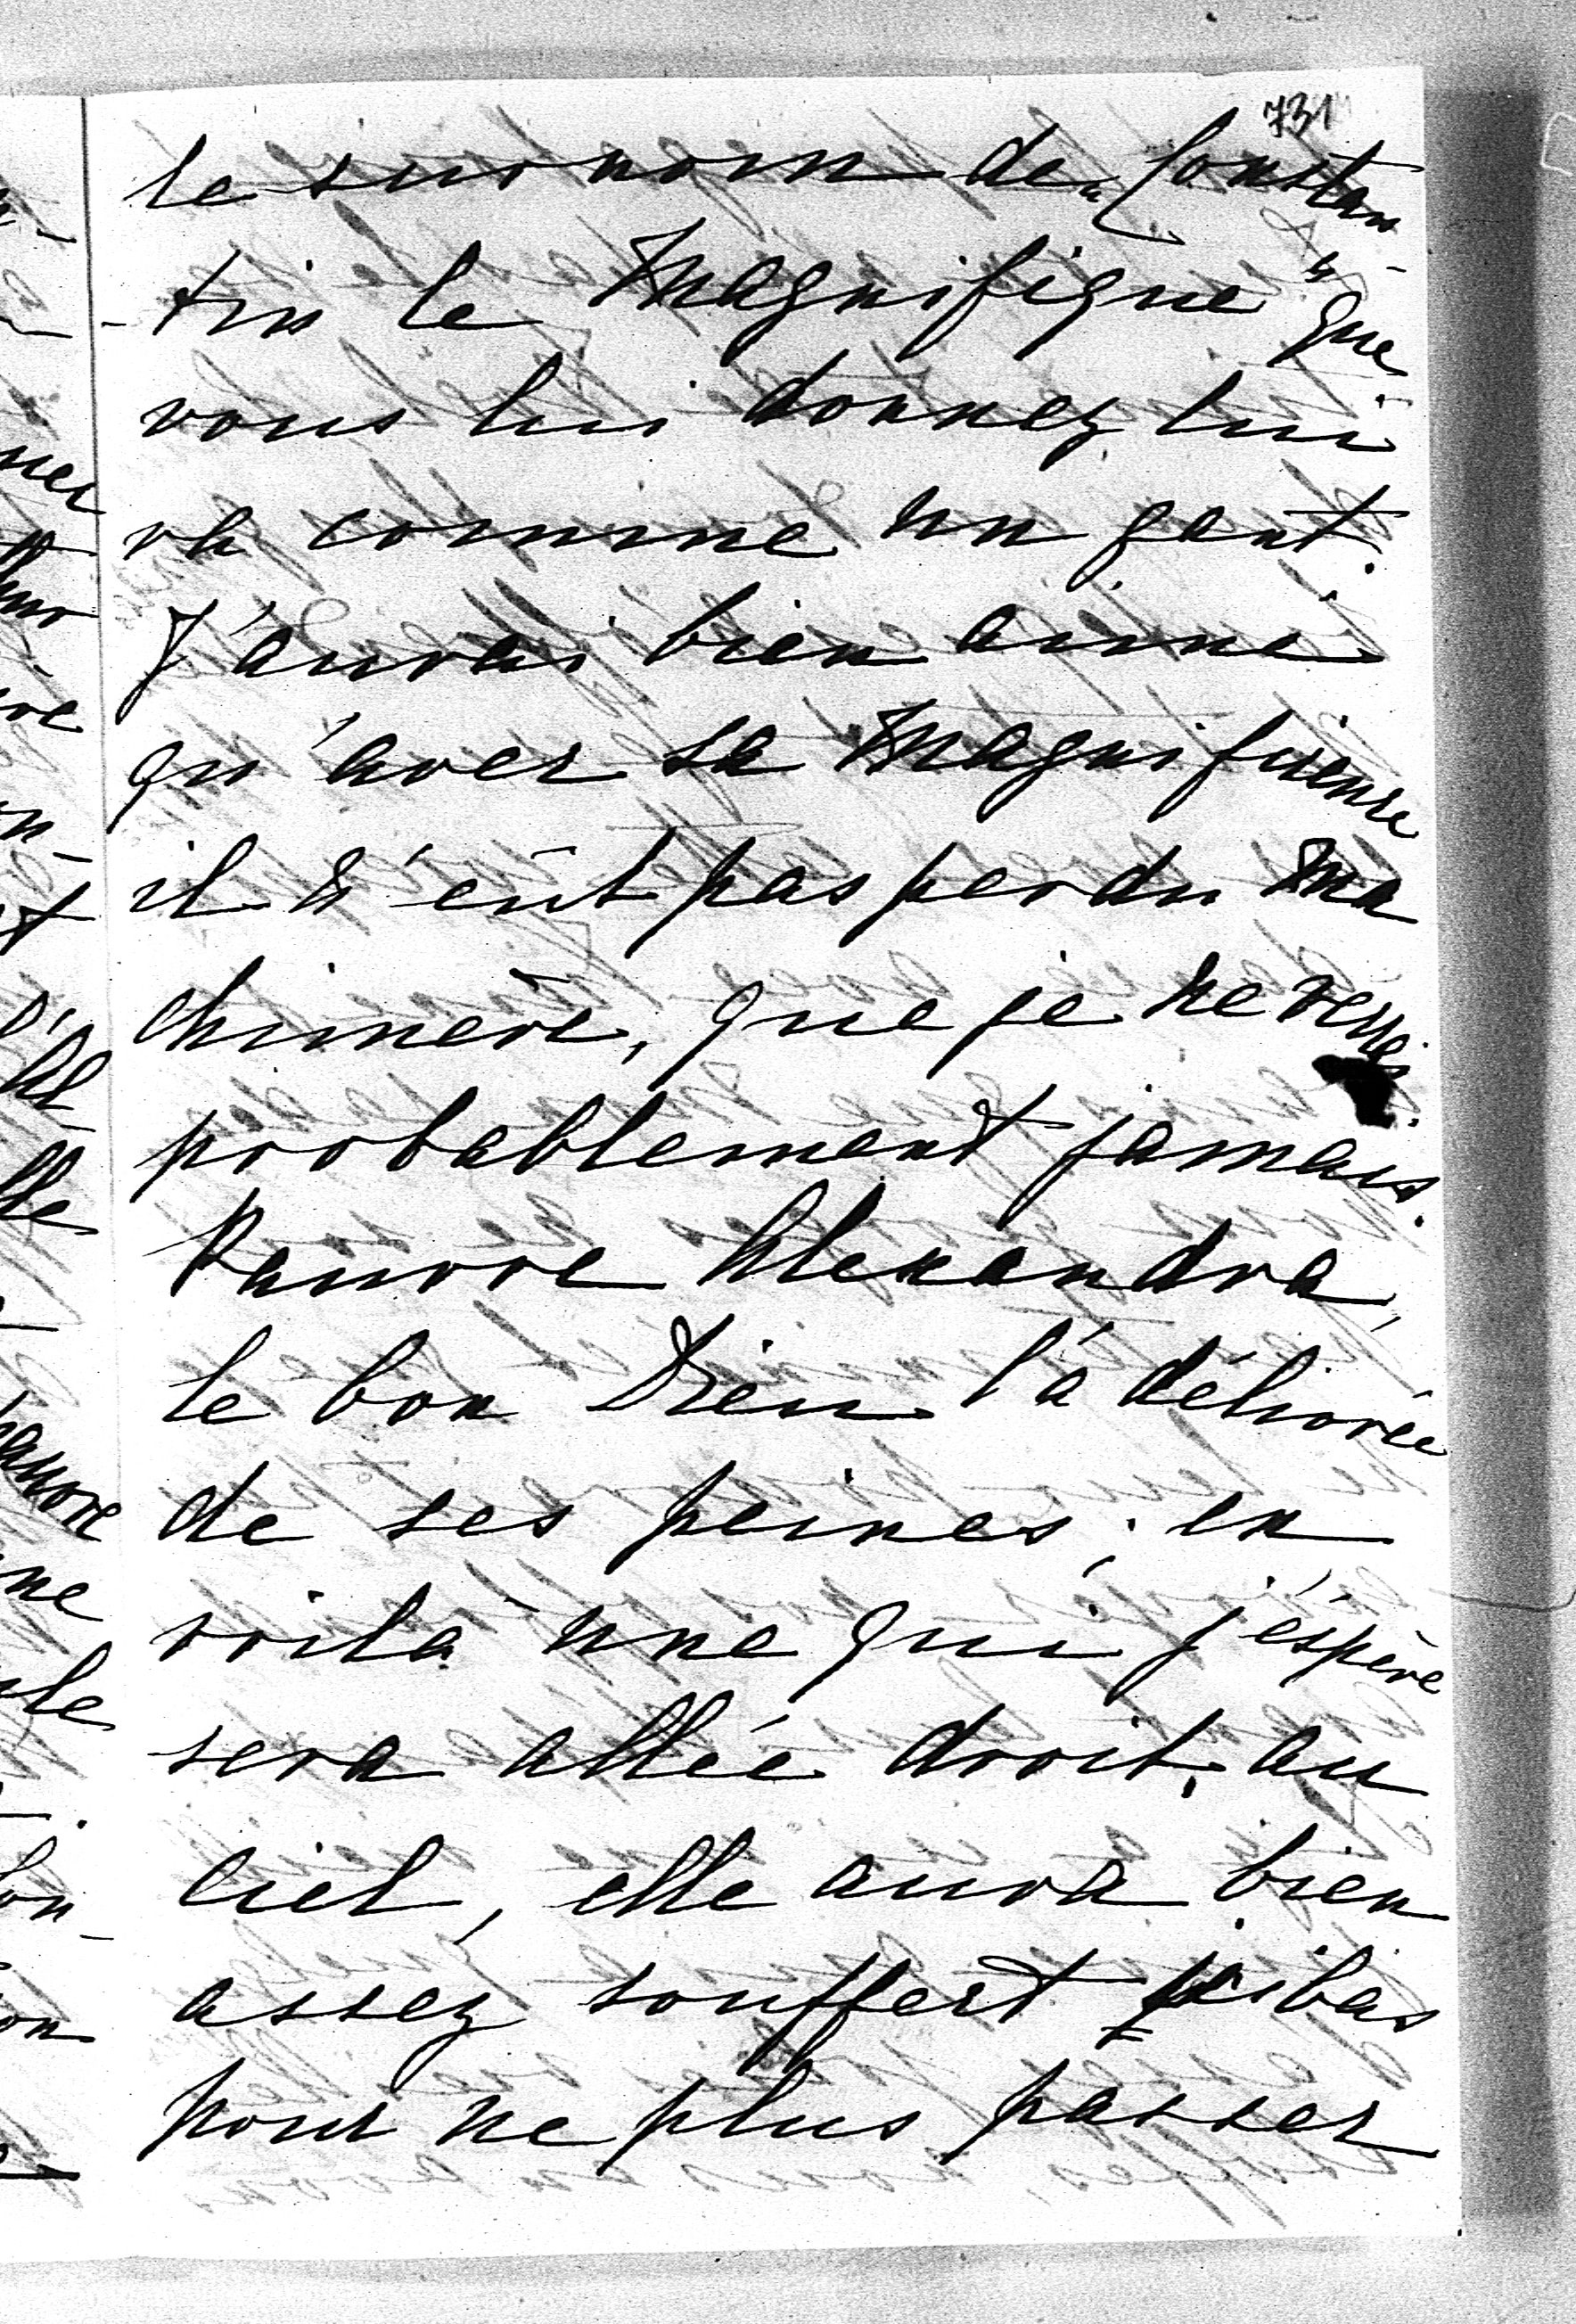 731
le surnom de „Constan-
-tin le Magnifique" que
vous lui donnez, lui
va comme un gant.
J'aurai bien aimé
qu'avec sa Magnificence
il n'eût pas perdu ma
chimère, que je ne verrai
probablement jamais.
Pauvre Alexandra,
le bon Dieu l'a délivrée
de ses peines; en
voilà une qui j'éspère
sera allée droit au
Ciel, elle aura bien
assez souffert ici bas
pour ne plus passer